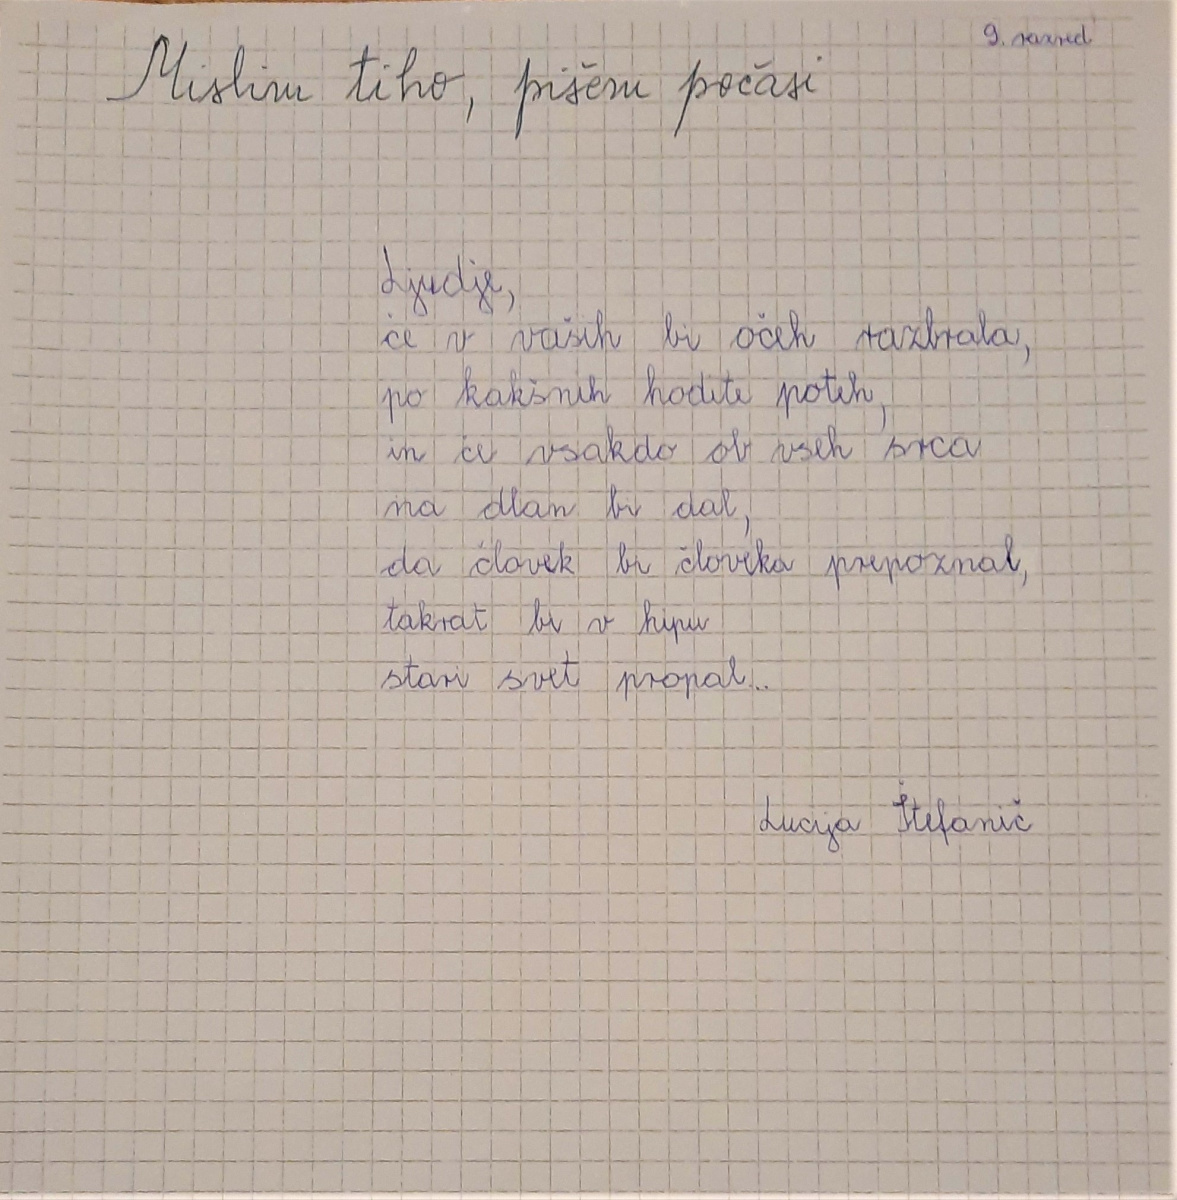 9. razred
Mislim tiho, pišem počasi
Ljudje,
če v vaših bi očeh razbrala,
po kakšnih hodite poteh,
in če vsakdo ob vseh srca
na dlan bi dal,
da človek bi človeka prepoznal,
takrat bi v hipu
stari svet propal...
Lucija Štefanič